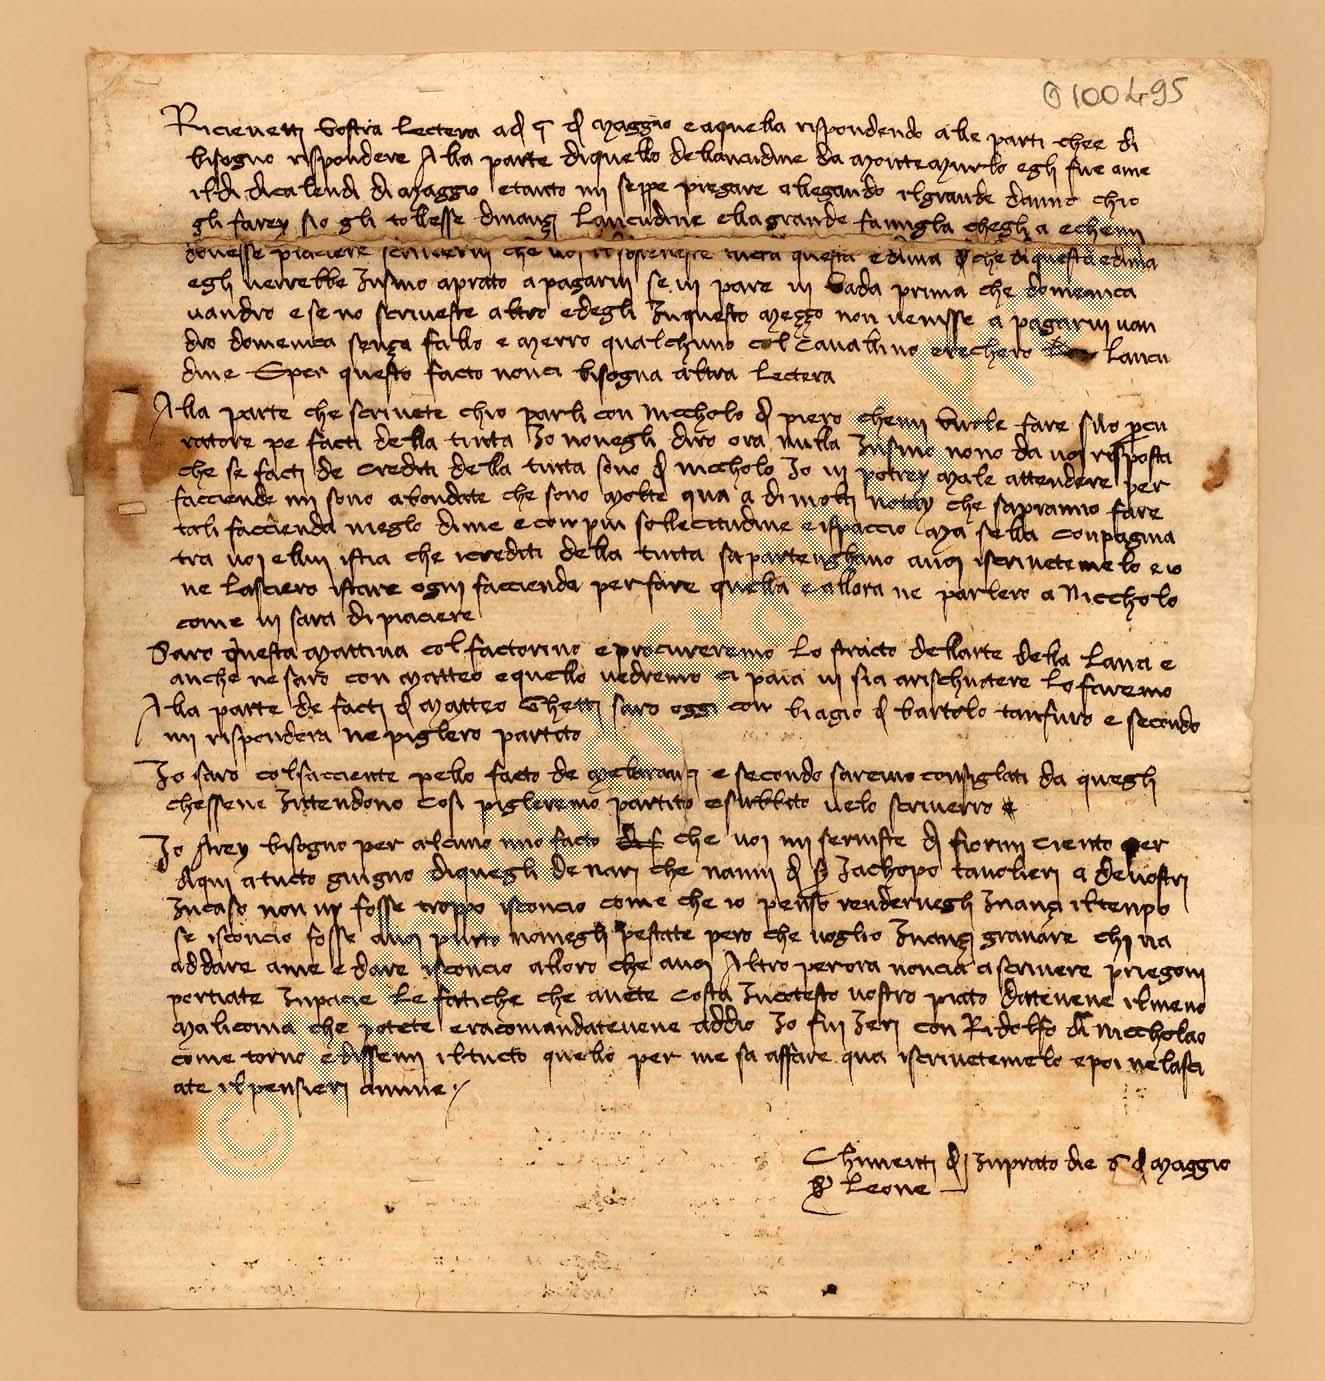 100495
Ricievetti vostra lectera a dì 5 di maggio e a quella rispondendo alle parti che è di
bisogno rispondere Alla parte di quello dell ancudine da Montemurlo egli fue a me
il dì di calendi di maggio e tanto mi seppe pregare allegando il grande danno ch io
gli farey s io gli tollesse dinanzi l ancudine e lla grande famigla ch egli a e che mi
dovesse piaciere scrivervi che voi sostenesse tucta questa edima che di questa edima
egli verrebbe insino a Prato a pagarvi se vi pare vi vada prima che domenica
v andrò e se no scriveste altro ed egli in questo mezzo non venisse a pagarvi v an
drò domenica senza fallo e merrò qualchuno col cavallino e recherò l ancu
dine E per questo facto non ci bisogna altra lectera
Alla parte che scrivete ch io parli con Niccholò di Piero che mi vuole fare suo procu
ratore pe facti della tinta Io no negli dirò ora nulla insino nonn ò da voi risposta
che se facti de crediti della tinta sono di Niccholò Io vi potrey male attendere per
facciende mi sono abondate che sono molte qua a di molti notay che sapranno fare
tali faccienda meglo di me e con più sollecitudine e ispaccio Ma se lla conpagnia
tra voi e llui istia che i crediti della tinta s apartenghano a voi iscrivetemelo e io
ne lascierò istare ogni faccienda per fare quella e allora ne parlerò a Niccholò
come vi sarà di piaciere
Sarò questa mattina col factorino e procureremo lo stracto dell arte della lana e
anche ne sarò con Matteo e quello vedremo ci paia vi sia a rischuotere lo faremo
Alla parte de facti di Matteo Ghetti sarò oggi con Biagio di Bartolo Tanfuro e secondo
mi risponderà ne piglerò partito
Io sarò col sacciente pello facto de melaranci e secondo saremo consiglati da quegli
che ssene intendono così pigleremo partito e subbito velo scriverrò
Io arey bisogno per alcuno mio facto che voi mi serviste di fiorini ciento per
di qui a tucto giugno di quegli denari che Nanni di ser Jachopo tavolieri a de vostri
in caso non vi fosse troppo isconcio come che io penso rendervegli innanzi il tenpo
se isconcio fosse a voi punto no megli prestate però che voglio innanzi gravare chi n a
a ddare a me e dare isconcio a lloro che a voi Altro per ora non ci à a scrivere priegovi
portiate in pacie le fatiche che avete costà in cotesto vostro piato datevene il meno
malicona che potete e racomandatevene a dDio Io fui ieri con Ridolfo di Niccholao
come tornò e dissemi il tucto quello per me s a affare qua iscrivetemelo e poi ne lasci
ate il pensieri a mme
Chimenti di in Prato die 6 di maggio
ser Leone